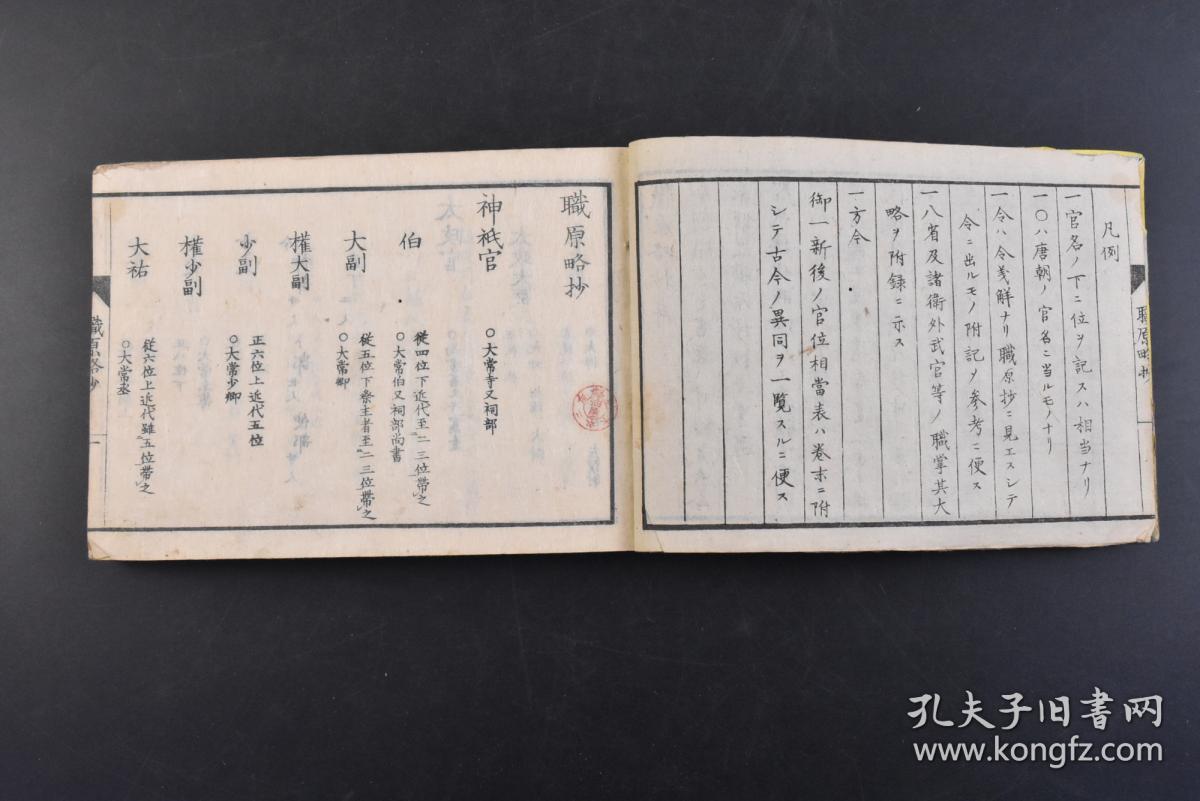 凡例
一官名ノ下ニ位ヲ記スハ相当ナリ
一〇ハ唐朝ノ官名ニ当ルモノナリ
一令ハ令義解ナリ職原抄ニ見エスシテ
令ニ出ルモノ附記ソ参考ニ便ス
一八省及諸衛外武官等ノ職掌其大
略ヲ附録ニ示ス
一方今
御一新後ノ官位相當表ハ巻末ニ附
シテ古今ノ異同ヲ一覧スルニ便ス
職原略抄
職原略抄
神祇官
〇大常寺又祠部
伯
從四位下近代至二三位帶之
〇大常伯又祠部尚書
大副
從五位下祭主者至二三位帶之
〇大常卿
權大副
少副
正六位上近代五位
〇大常少卿
權少副
大祐
從六位上近代雖五位帶之
〇大常丞
職原略抄
一
孔夫子旧书网
www.kongfz.com